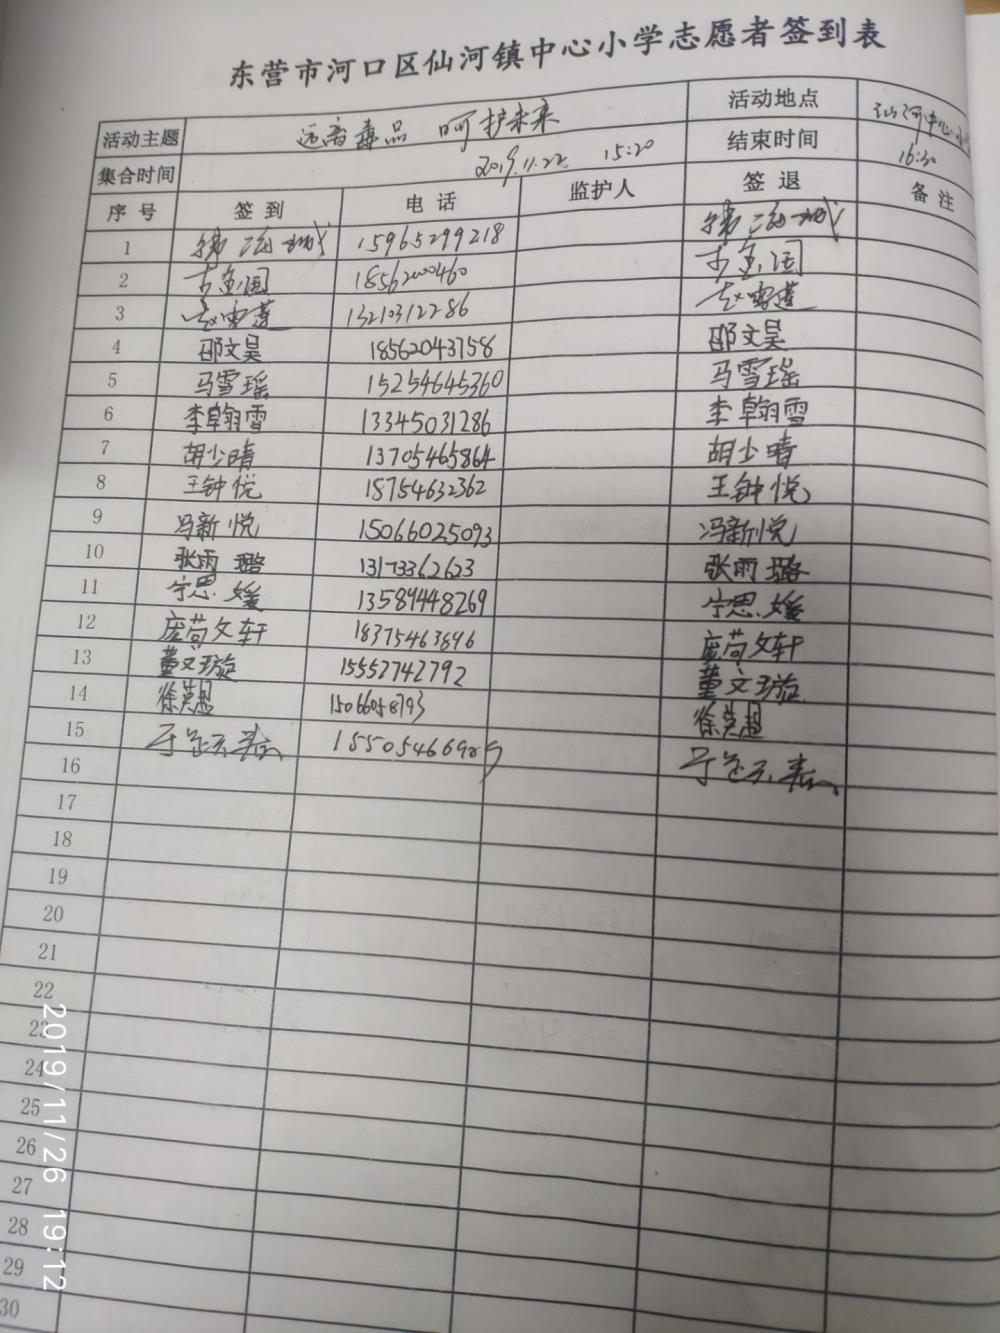 东营市河口区仙河镇中心小学志愿者签到表
活动主题 远离毒品 呵护未来 活动地点 仙河中心小
集合时间 2019.11.22 15:20 结束时间 16:30
序号 签到 电话 监护人 签退 备注
1 15965299218
2 18562000460
3 赵雪莲 13210312286 赵雪莲
4 邵文昊 18562043758 邵文昊
5 马雪瑶 15254645360 马雪瑶
6 李翰雪 13345031286 李翰雪
7 胡少晴 13705465864 胡少晴
8 王钟悦 18754632362 王钟悦
9 冯新悦 15066025093 冯新悦
10 张雨璐 13173362623 张雨璐
11 宁思媛 13589448269 宁思媛
12 庞苟文轩 18375463896 庞苟文轩
13 董文璇 15552742792 董文璇
14 徐英超 15066058793 徐英超
15 15505466989
16
17
18
19
20
21
22
23
24
25
26
27
28
29
30
2019/11/26 19:12